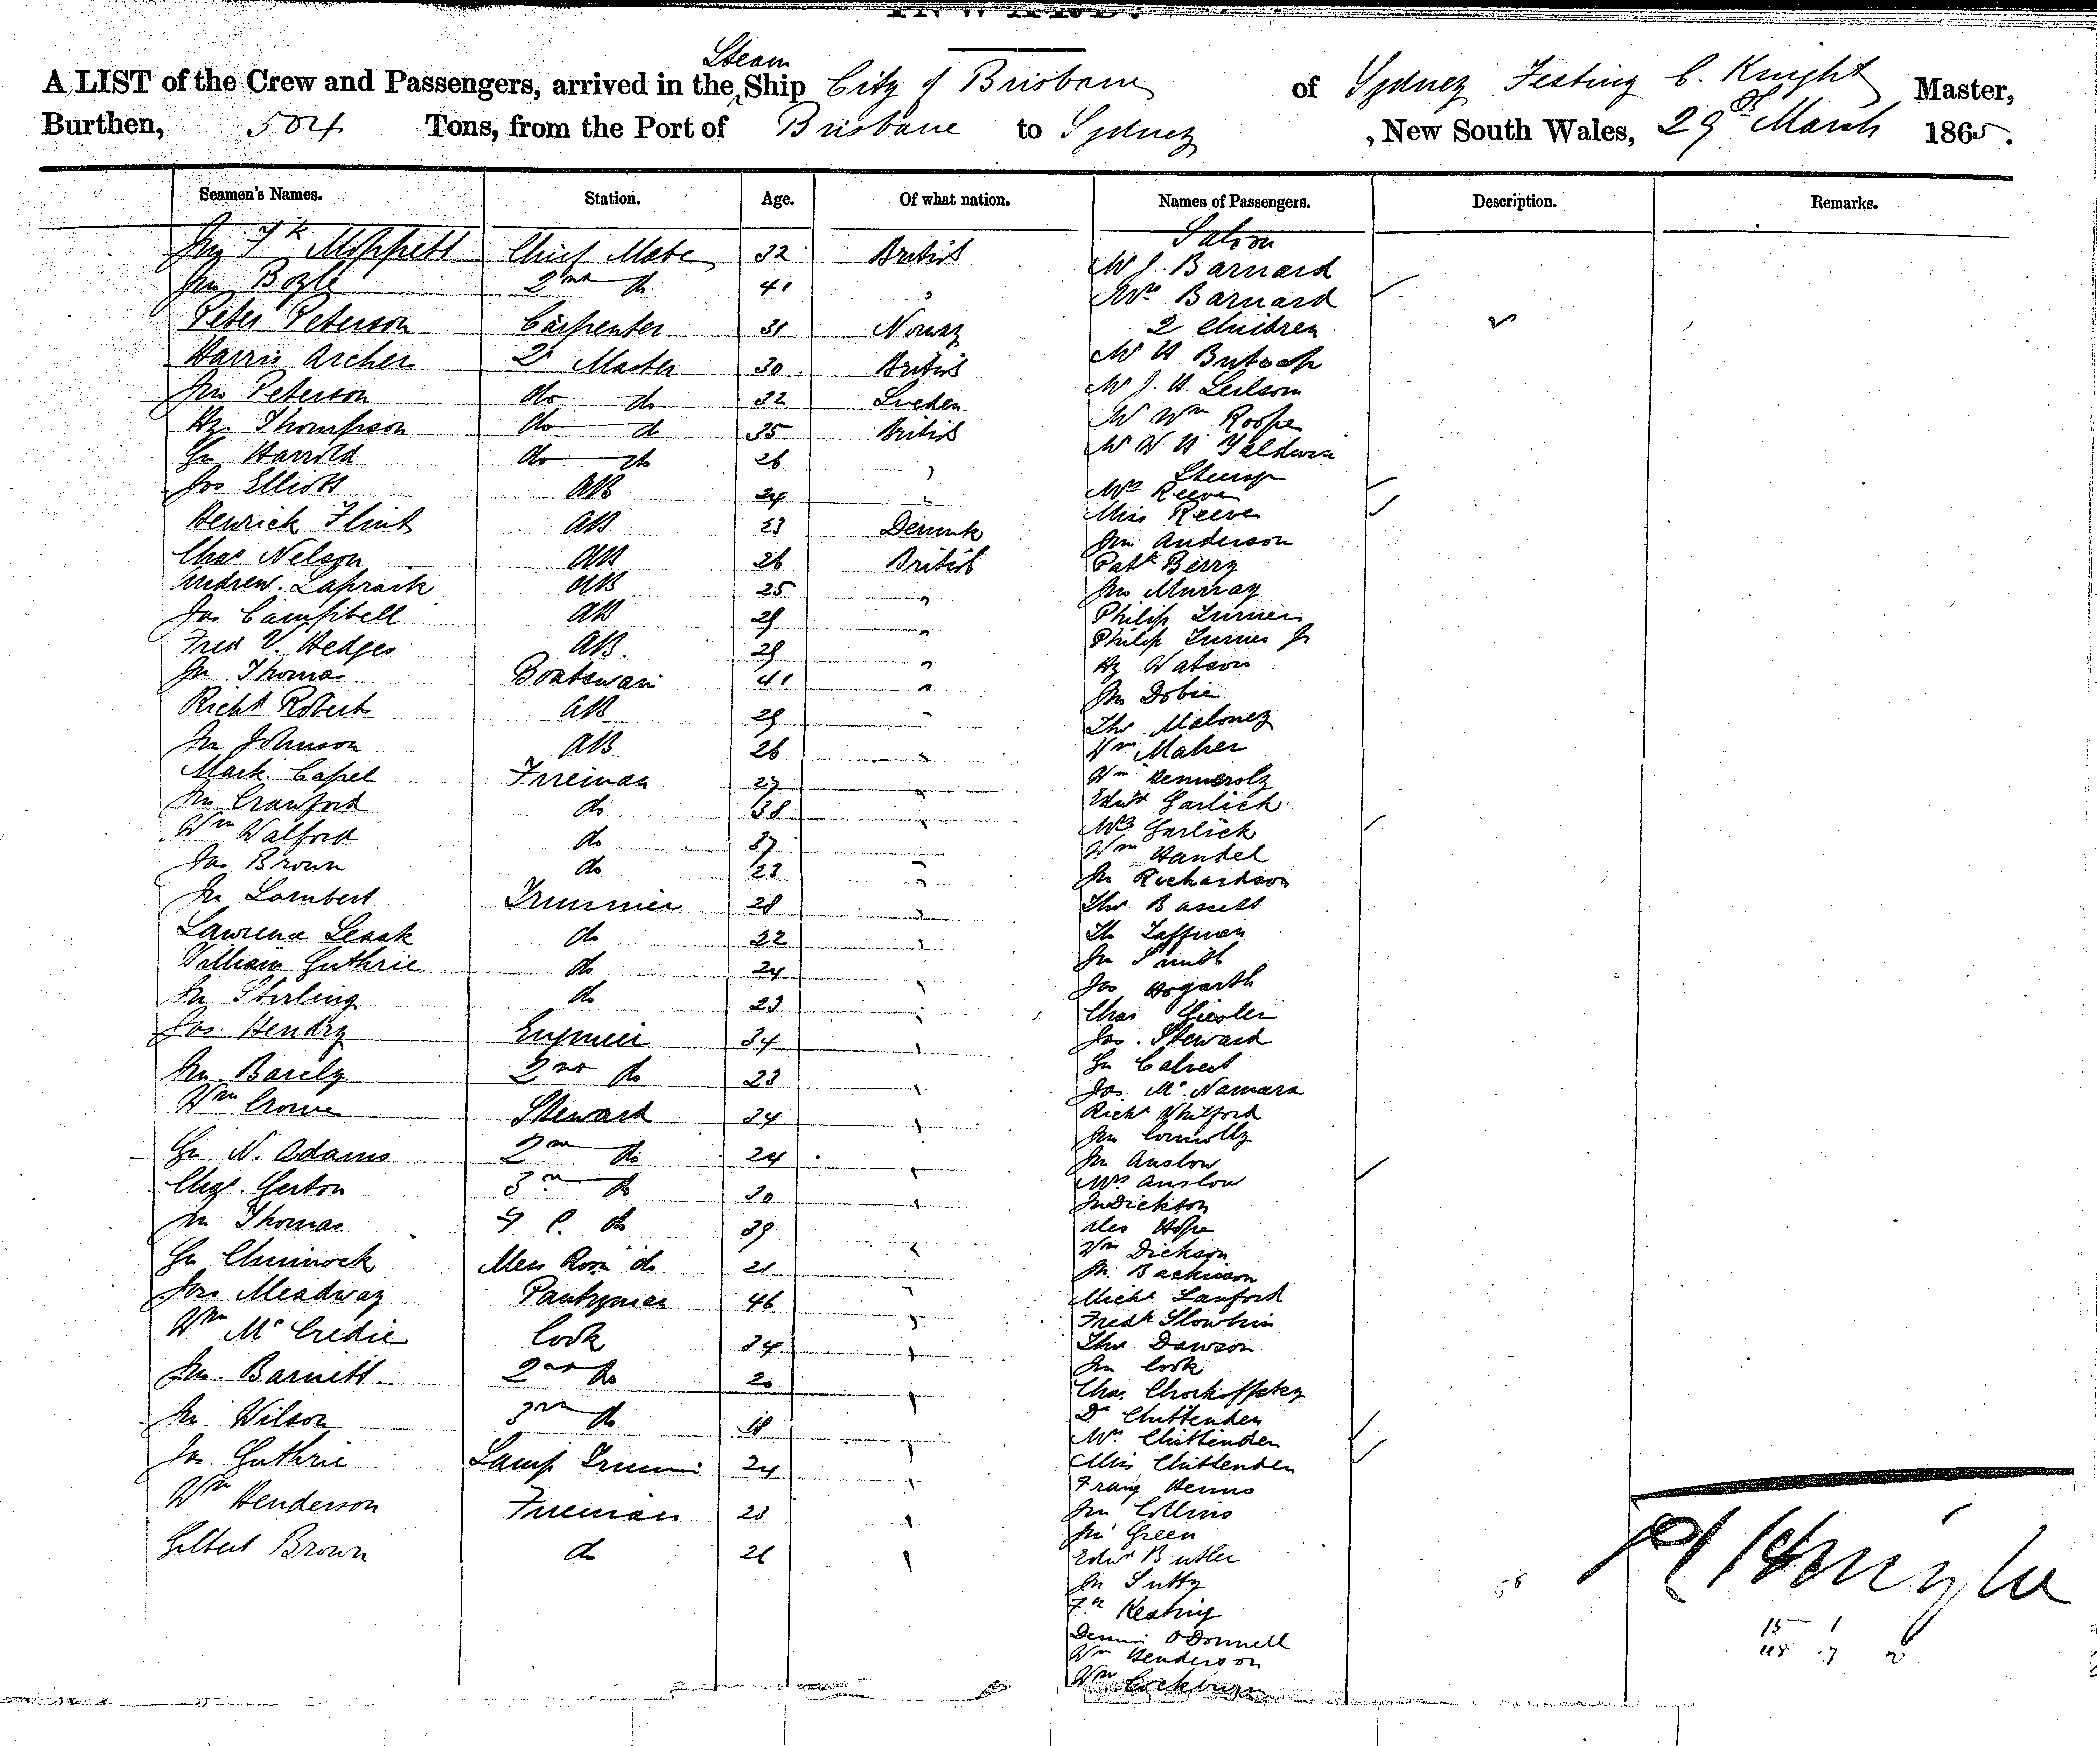 INWARD.
A LIST of the Crew and Passengers, arrived in the Steam Ship City of Brisbane of Sydney Festing C. Knight Master,
Burthen, 504 Tons, from the Port of Brisbane to Sydney , New South Wales, 29th March 1865.
Seamen's Names. Station. Age. Of what nation. Names of Passengers. Description. Remarks.
Saloon
Jno Fk Moppett Chief Mate 32 British
Mr J. Barnard
Jno Bogle 2nd do 41 "
Mrs Barnard
Peter Peterson Carpenter 31 Norway
2 Children
Harris Archer Qr Master 30 British
Mr H
Jno Peterson do do 32 Sweden
Mr J. H.
Hy Thompson do do 35 British
Mr Wm Roope
Go Harrold do do 26 "
Mr W H Yaldwin
Steerage
Jos Elliott AB 24 "
Mrs Reeve
Henrick Flint AB 23 Denmk
Miss Reeve
Jno Anderson
Chas Nelson AB 26 British
Patk Berry
Andrew Laprack AB 25 "
Jno Murray
Jas Campbell AB 29 "
Philip Turner
Fred V. Hedges AB 29 "
Philip Turner Jr
Jn Thomas Boatswain 41 "
Hy Watson
Jno Dobie
Richd Robert AB 29 "
Tho Maloney
Jn Johnson AB 26 "
Wm Maher
Mark Capel Fireman 27 "
Wm Henneroly
Jno Crawford do 38 "
Edwd Garlick
Wm Walford do 37 "
Mrs Garlick
Wm Handel
Jas Brown do 23 "
Jn Richardson
Jn Lambert Trimmer 28 "
Tho Bassett
Lawrence Leask do 22 "
Th Taffman
William Guthrie do 24 "
Jn Smith
Jn Stirling do 23 "
Jos Hogarth
Chas Giesler
Jas Hendry Engineer 34 "
Jas. Steward
Go Calvert
Jno Barely 2nd do 23 "
Jas. McNamara
Wm Crowe Steward 34 "
Richd Whitford
Jno Connolly
Go N. Adams 2nd do 24 "
Jn Anslow
Mrs Anslow
Chas. Gerton 3rd do 30 "
Jn Dickson
Jn Thomas F C. do 39 "
Alex Hope
Wm Dickson
Go Chinnock Mess Room do 21 "
Jn. Backinson
Jos Meadway Pantryman 46 "
Michl Lanford
Fredk Slowkin
Wm McCredie Cook 34 "
Tho Dawson
Jno Cook
Jno Barnett 2nd do 20 "
Chas.
Dr Chittenden
Jn Wilson 3rd do 18 "
Mrs Chittenden
Jas Guthrie Lamp Trimmer 24 "
Miss Chittenden
Franz Henns
Wm Henderson Fireman 23 "
Jno Collins
Jno Green
Gilbert Brown do 21 "
Edwd Butler
Jn Sutty
Keating
Dennis O'Donnell
Wm Henderson
Wm Cockburn
58
15 1